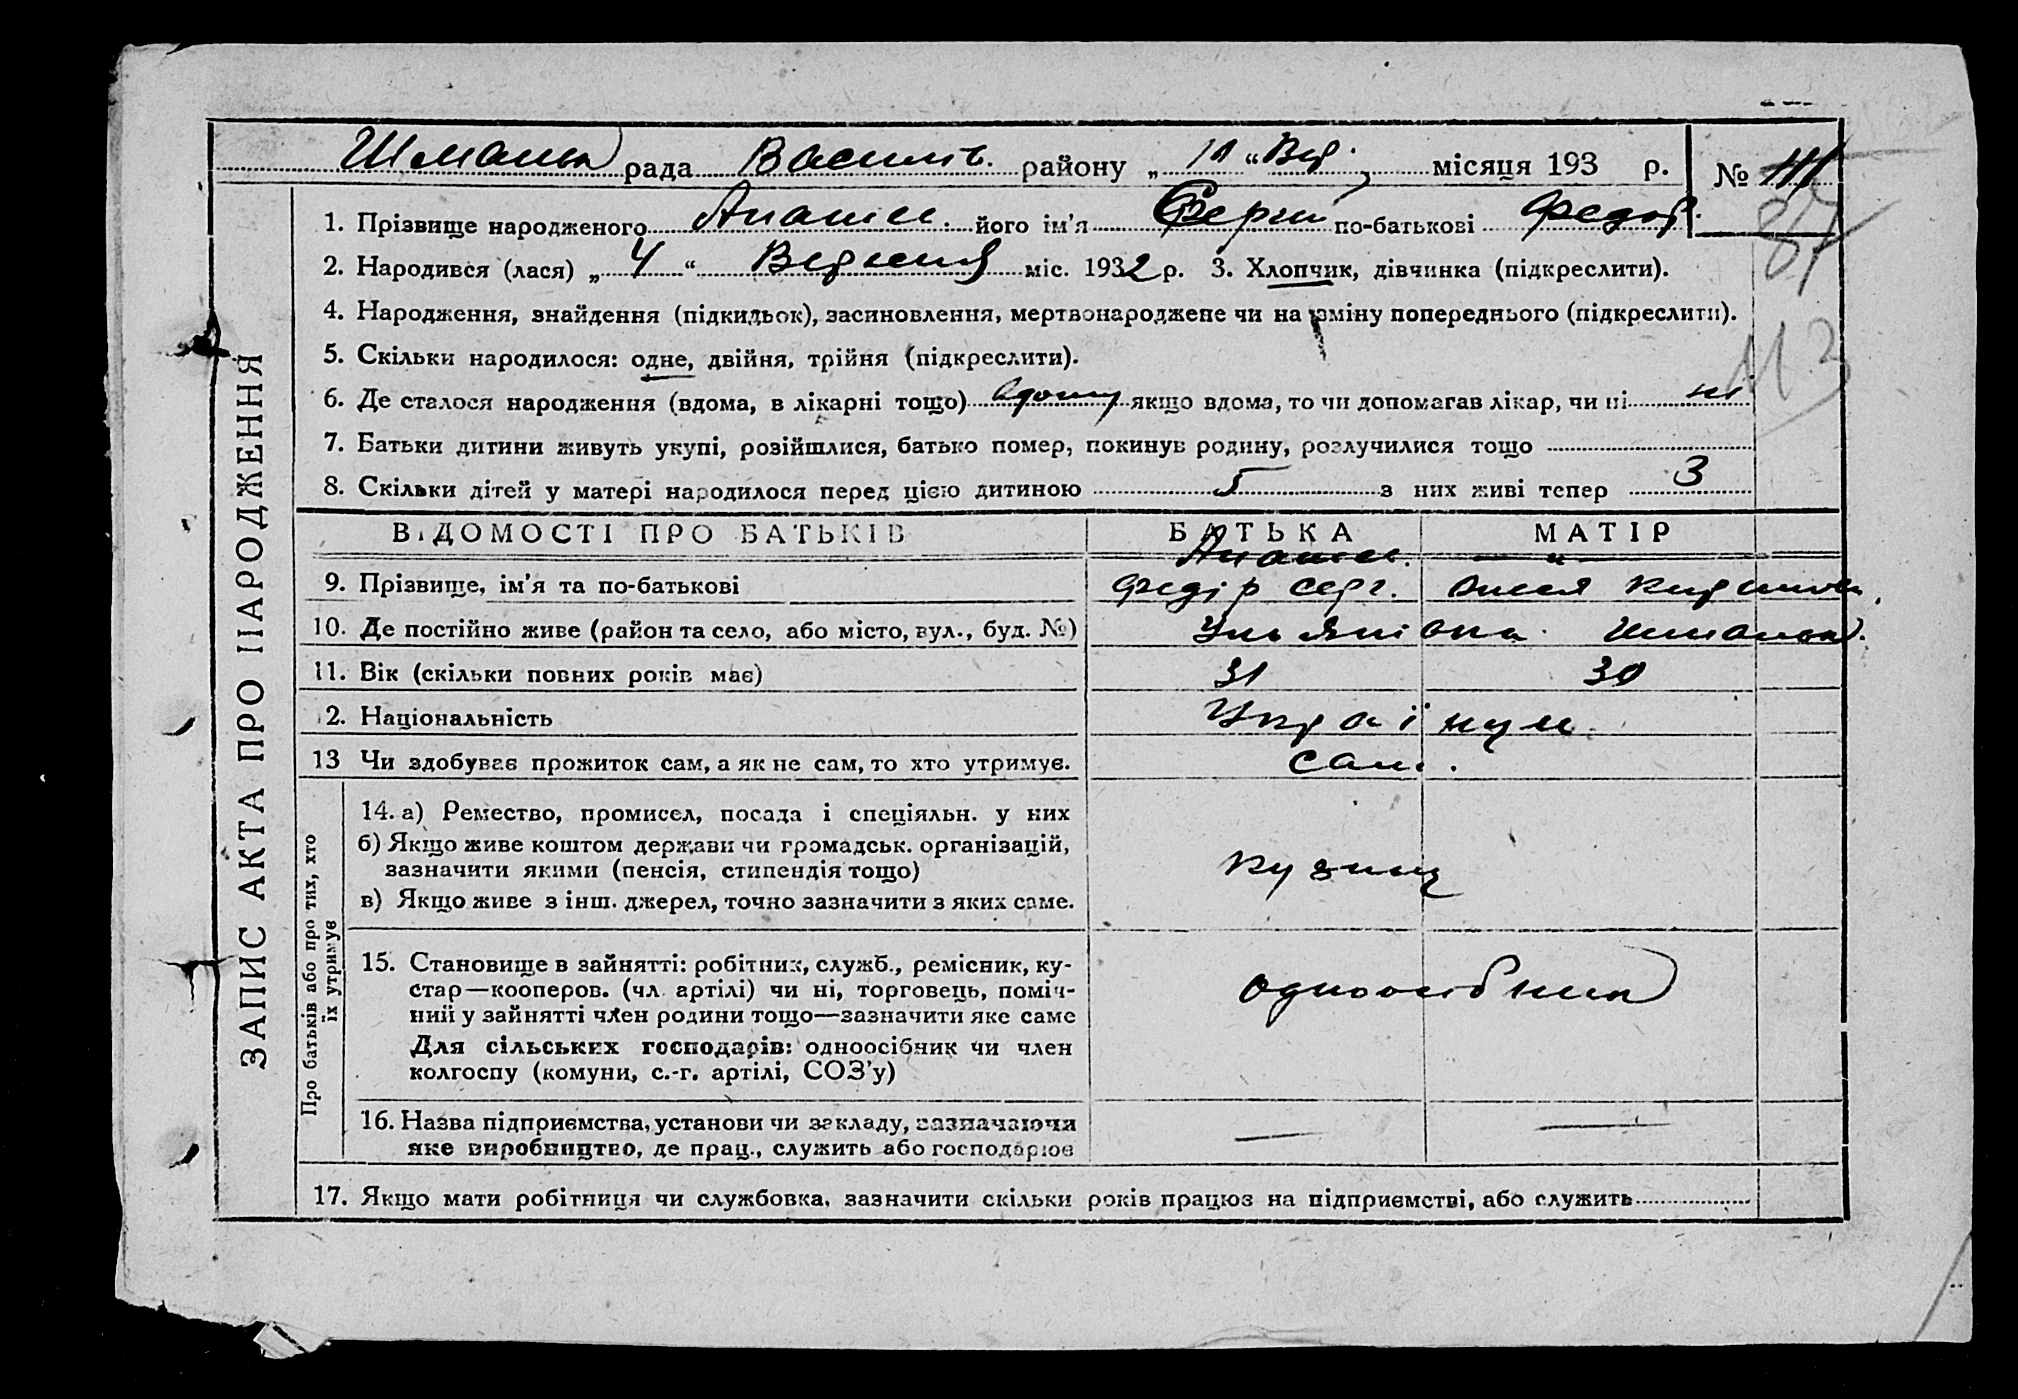 рада Василь. району „ 10 “ Вер. місяця 193 р. № 111
1. Прізвище народженого його ім’я Сергій по-батькові Федор.
87
2. Народився (лася) „ 4 “ Вересня міс. 1932 р. 3. Хлопчик, дівчинка (підкреслити).
4. Народження, знайдення (підкидьок), засиновлення, мертвонароджене чи на зміну попереднього (підкреслити).
113
5. Скільки народилося: одне, двійня, трійня (підкреслити).
6. Де сталося народження (вдома, в лікарні тощо) вдому якщо вдома, то чи допомагав лікар, чи ні ні
7. Батьки дитини живуть укупі, розійшлися, батько помер, покинув родину, розлучилися тощо
8. Скільки дітей у матері народилося перед цією дитиною 5 з них живі тепер 3
ВІДОМОСТІ ПРО БАТЬКІВ БАТЬКА МАТІР
„
9. Прізвище, ім’я та по-батькові Федір Серг.
10. Де постійно живе (район та село, або місто, вул., буд. №) Ульянівка
11. Вік (скільки повних років має) 31 30
12. Національність Українци
13 Чи здобуває прожиток сам, а як не сам, то хто утримує. сам.
14. а) Ремество, промисел, посада і спеціяльн. у них
б) Якщо живе коштом держави чи громадськ. організацій,
зазначити якими (пенсія, стипендія тощо)
в) Якщо живе з інш. джерел, точно зазначити з яких саме.
15. Становище в зайнятті: робітник, служб., ремісник, ку-
стар—кооперов. (чл. артілі) чи ні, торговець, поміч-
ний у зайнятті член родини тощо—зазначити яке саме
одноосібник
Для сільських господарів: одноосібник чи член
колгоспу (комуни, с.-г. артілі, СОЗ’у)
16. Назва підприємства, установи чи закладу, зазначаючи
яке виробництво, де прац., служить або господарює
17. Якщо мати робітниця чи службовка, зазначити скільки років працює на підприємстві, або служить
ЗАПИС АКТА ПРО НАРОДЖЕННЯ
Про батьків або про тих, хто
їх утримує